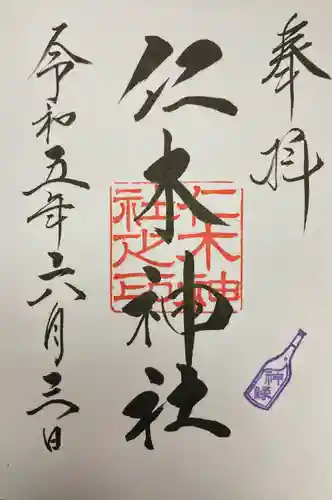 奉拝
仁木神社
仁木神社之印
令和五年六月三日
神縁